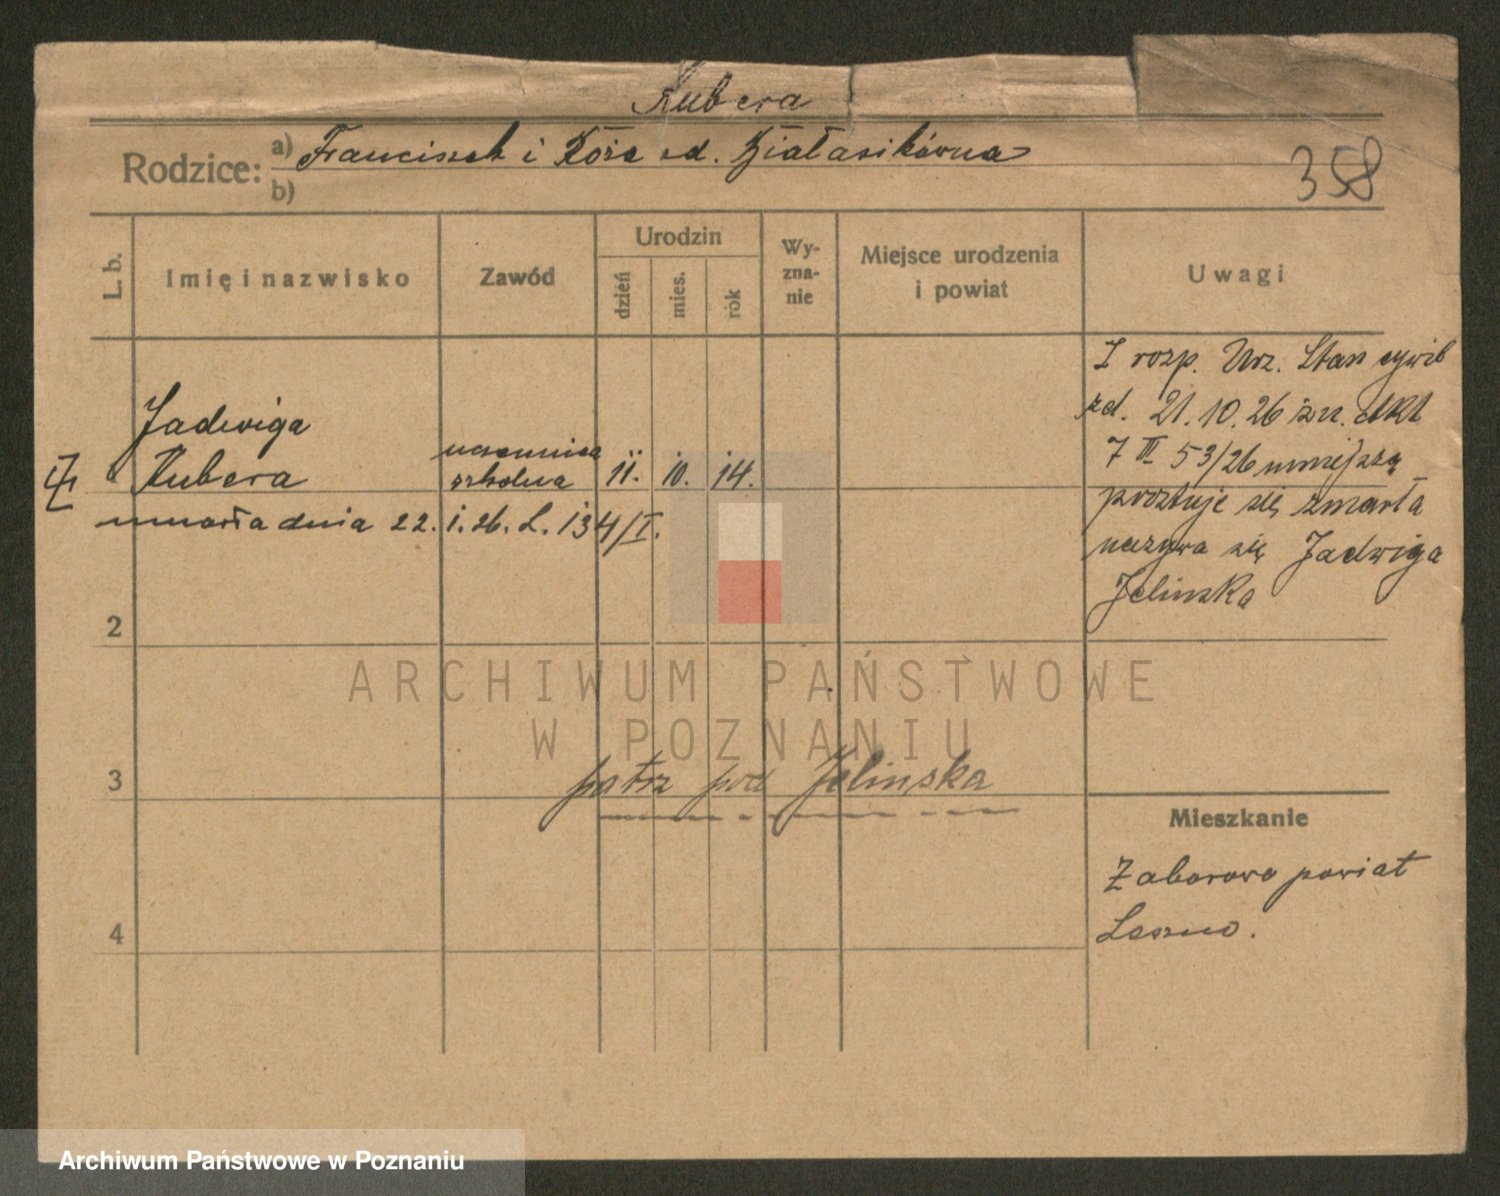 Kubera
Rodzice: a) Franciszek i Róża zd. Białasikówna
b)
358
L. b.
Imię i nazwisko
Zawód
Urodzin
dzień
mies.
rok
Wy-
zna-
nie
Miejsce urodzenia
i powiat
Uwagi
Jadwiga
Kubera
uczennica
szkolna
11. 10. 14.
umarła dnia 22. 1. 26. L. 134/I.
Z rozp. Urz. Stan cywil
zd. 21. 10. 26 zn. akt
7 III 53/26 umiejszą
prostuje się zmarła
nazywa się Jadwiga
Jelinska
2
3
patrz pod Jelinska
Mieszkanie
Zaborowo powiat
Leszno.
4
ARCHIWUM PAŃSTWOWE
W POZNANIU
Archiwum Państwowe w Poznaniu